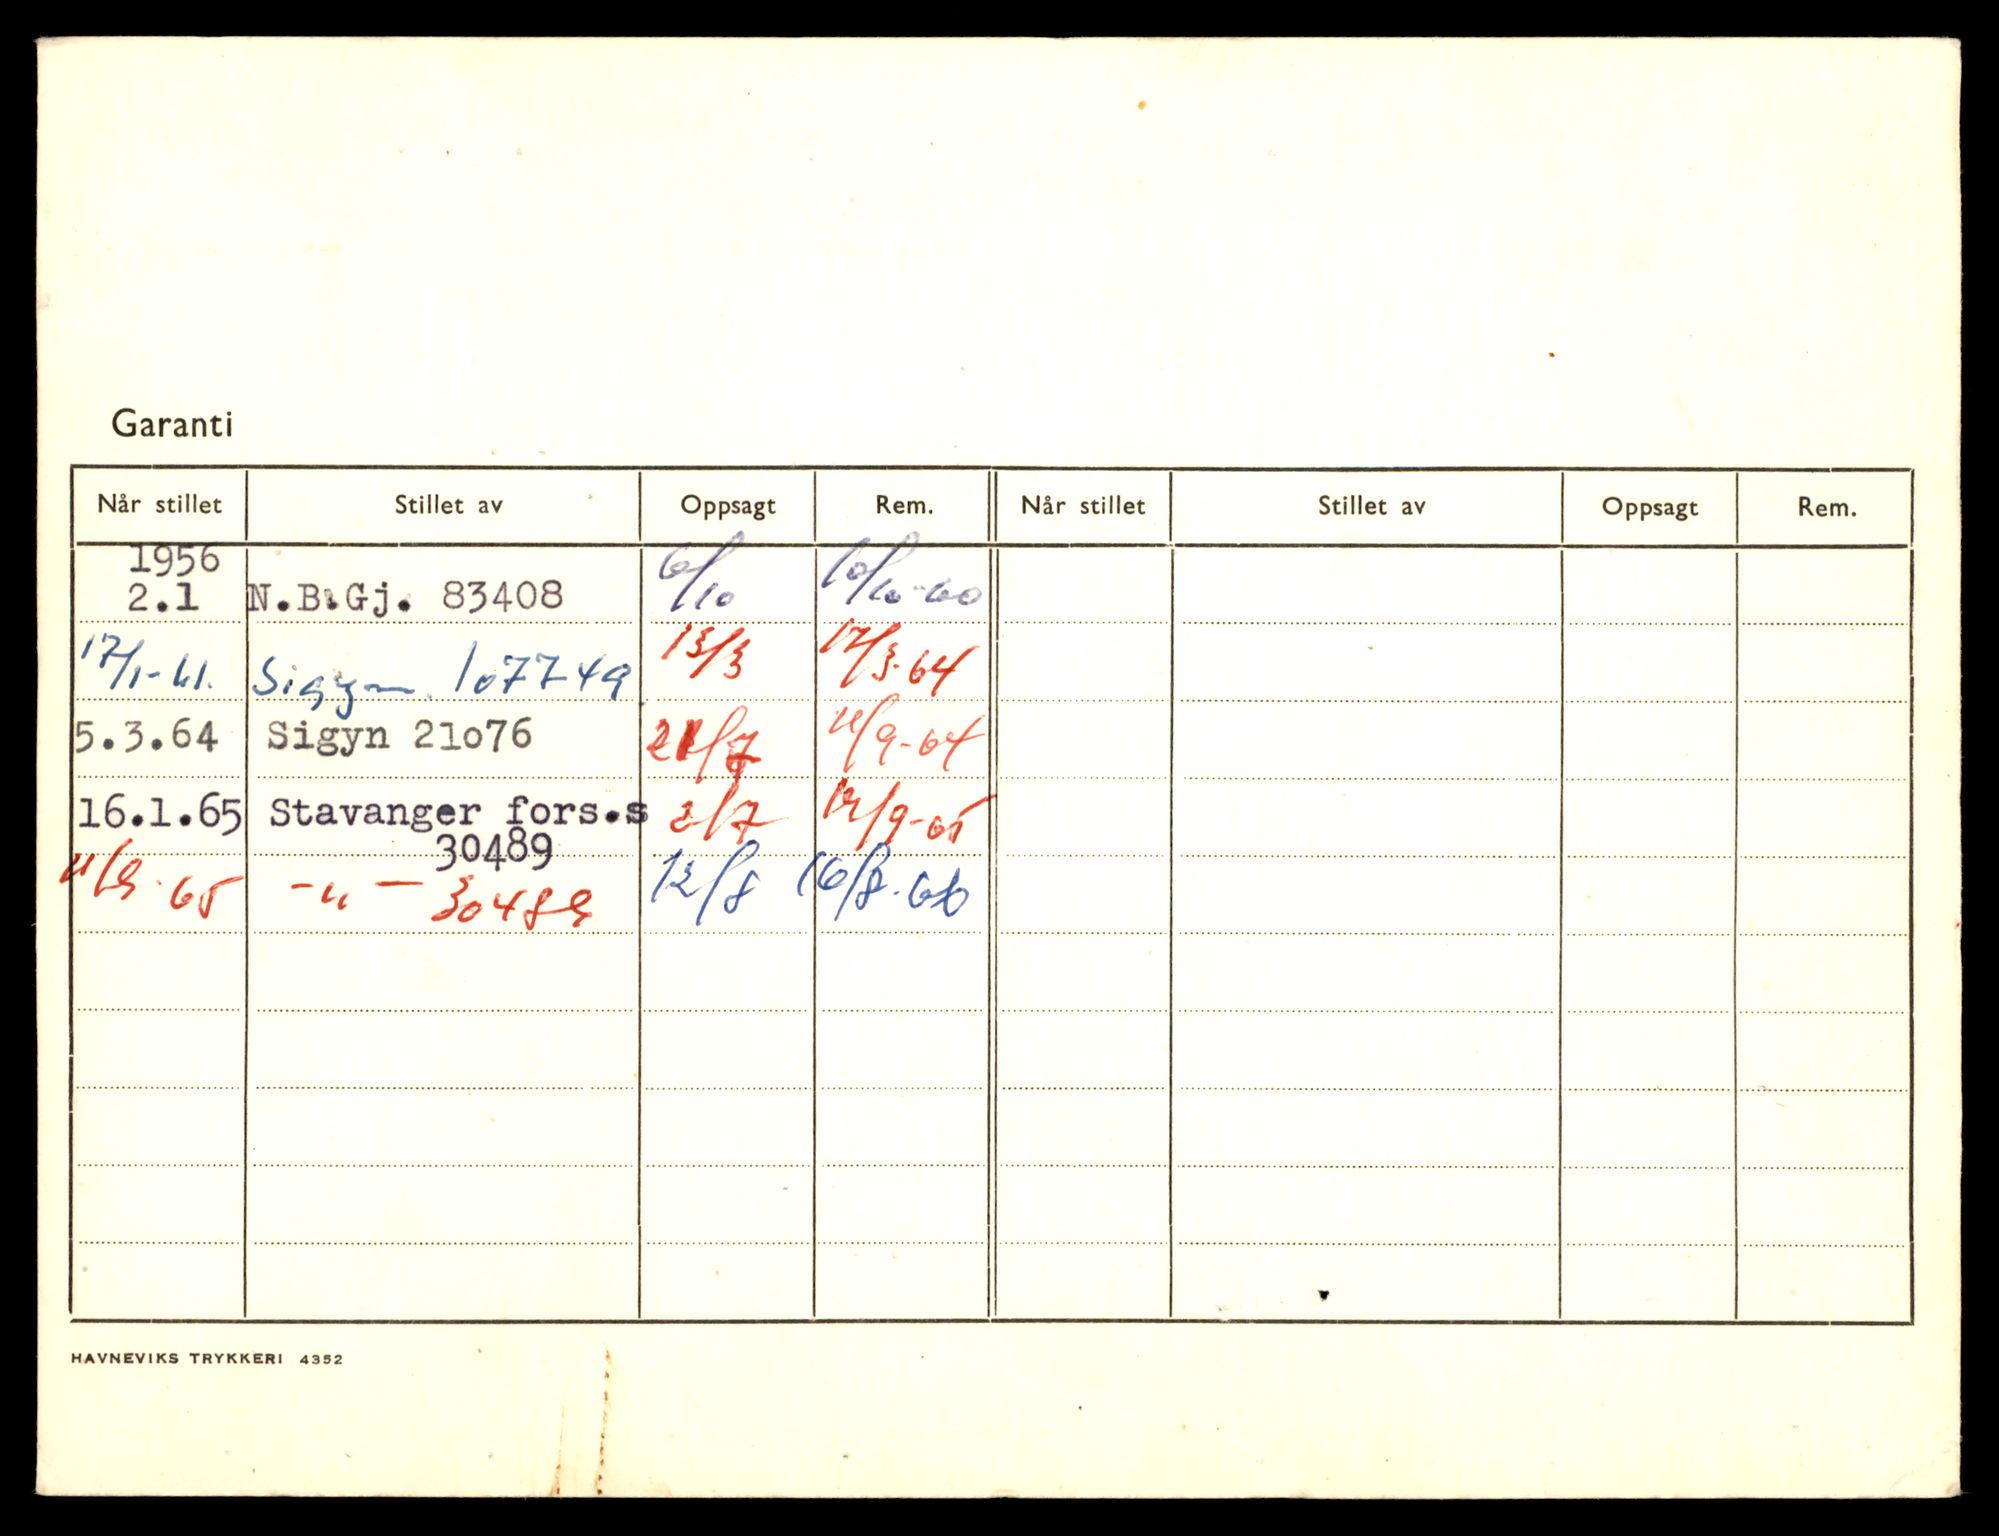 Garanti
Når stillet Stillet av Oppsagt Rem. Når stillet Stillet av Oppsagt Rem.
1956
2.1 N.B.Gj. 83408 6/10 10/10-60
17/1-61. Sigyn. 107749 13/3 17/3-64
5.3.64 Sigyn 21o76 11/9-64
16.1.65 Stavanger fors.s 2/7 12/9-65
30489
11/9-65 -"- 30489 12/8 16/8-66
HAVNEVIKS TRYKKERI 4352